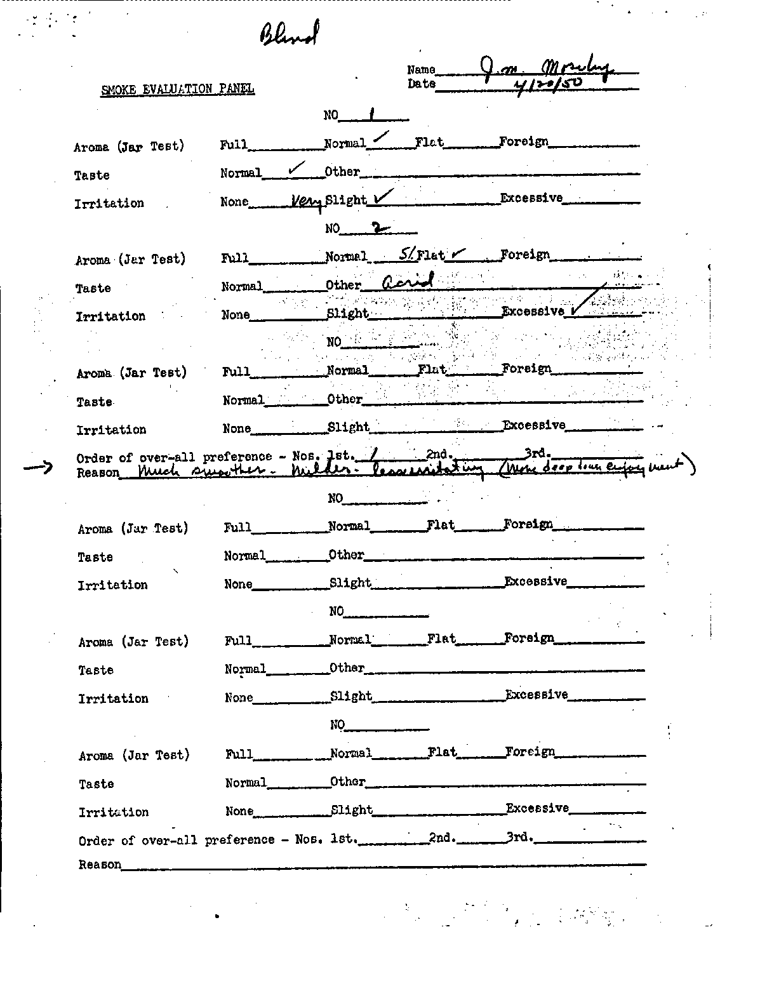 Blend
Name J. M. Moseley
SMOKE EVALUATION PANEL
Date 4/20/50
NO 1
Aroma (Jar Test) Full Normal ✓ Flat Foreign
Taste Normal ✓ Other
Irritation None Very Slight ✓ Excessive
NO 2
Aroma (Jar Test) Full Normal Sl Flat ✓ Foreign
Taste Normal Other Acrid
Irritation None Slight Excessive ✓
NO
Aroma (Jar Test) Full Normal Flat Foreign
Taste Normal Other
Irritation None Slight Excessive
Order of over-all preference - Nos. 1st. 1 2nd. 3rd.
→ Reason Much smoother - Milder - less irritating (More deep enjoyment)
NO
Aroma (Jar Test) Full Normal Flat Foreign
Taste Normal Other
Irritation None Slight Excessive
NO
Aroma (Jar Test) Full Normal Flat Foreign
Taste Normal Other
Irritation None Slight Excessive
NO
Aroma (Jar Test) Full Normal Flat Foreign
Taste Normal Other
Irritation None Slight Excessive
Order of over-all preference - Nos. 1st. 2nd. 3rd.
Reason